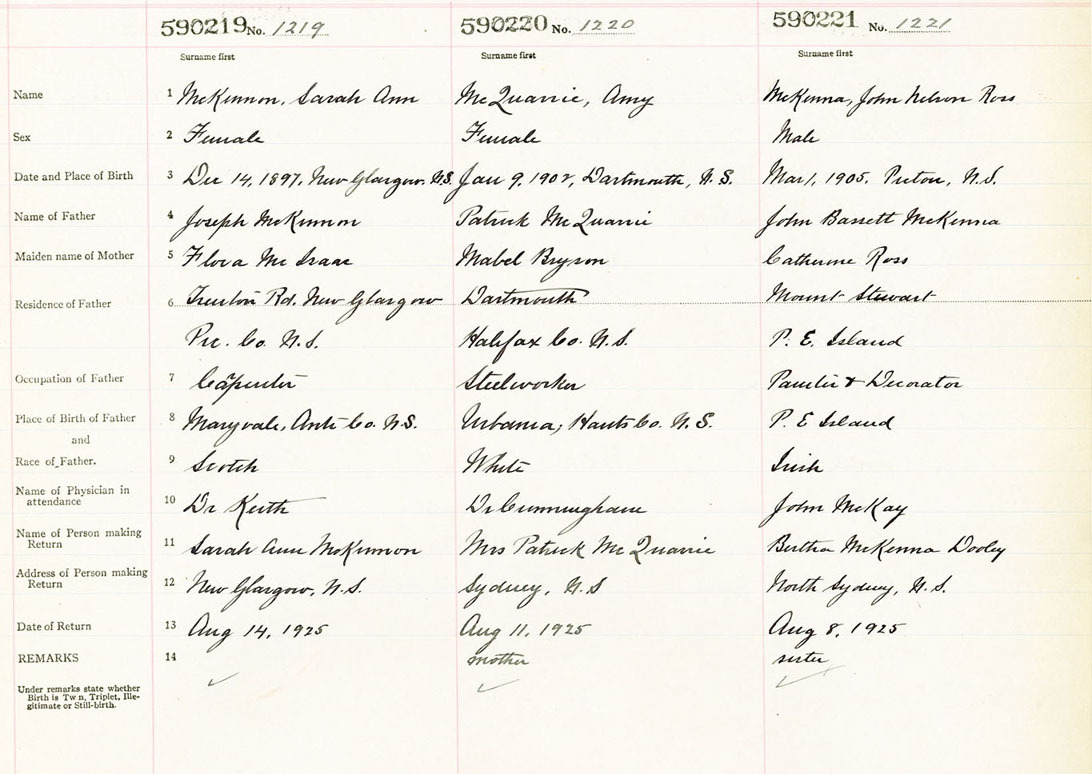 590219 No. 1219 590220 No. 1220 590221 No. 1221
Surname first Surname first Surname first
Name 1 McKinnon, Sarah Ann McQuarrie, Amy McKenna, John Nelson Ross
Sex 2 Female Female Male
Date and Place of Birth 3 Dec 14, 1897, New Glasgow, N.S. Jan 9, 1902, Dartmouth, N.S. Mar 1, 1905. Pictou, N.S.
Name of Father 4 Joseph McKinnon Patrick McQuarrie John Barrett McKenna
Maiden name of Mother 5 Flora McIsaac Mabel Bryson Catherine Ross
Residence of Father 6 Trenton Rd. New Glasgow Dartmouth Mount Stewart
Pic. Co. N.S. Halifax Co. N.S. P. E. Island
Occupation of Father 7 Carpenter Steelworker Painter & Decorator
Place of Birth of Father 8 Maryvale, Anti Co. N.S. Urbania, Hants Co. N.S. P. E Island
and
Race of Father. 9 Scotch White Irish
Name of Physician in
attendance 10 Dr Keith Dr Cunningham John McKay
Name of Person making
Return 11 Sarah Ann McKinnon Mrs Patrick McQuarrie Bertha McKenna Dooley
Address of Person making
Return 12 New Glasgow, N.S. Sydney, N.S North Sydney, N.S.
Date of Return 13 Aug 14, 1925 Aug 11, 1925 Aug 8, 1925
REMARKS 14 mother sister
Under remarks state whether
Birth is Tw n, Triplet, Ille-
gitimate or Still-birth.